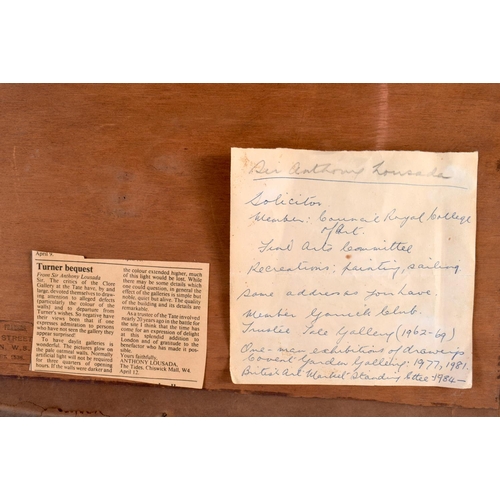 April 9.
Turner bequest
From Sir Anthony Lousada
Sir, The critics of the Clore
Gallery at the Tate have, by and
large, devoted themselves to draw-
ing attention to alleged defects
(particularly the colour of the
walls) and to departure from
Turner's wishes. So negative have
their views been that if one
expresses admiration to persons
who have not seen the gallery they
appear surprised!
To have daylit galleries is
wonderful. The pictures glow on
the pale oatmeal walls. Normally
artificial light will not be required
for three quarters of opening
hours. If the walls were darker and
the colour extended higher, much
of this light would be lost. While
there may be some details which
one could question, in general the
effect of the galleries is simple but
noble, quiet but alive. The quality
of the building and its details are
remarkable.
As a trustee of the Tate involved
nearly 20 years ago in the battle for
the site I think that the time has
come for an expression of delight
at this splendid addition to
London and of gratitude to the
benefactor who has made it pos-
sible.
Yours faithfully,
ANTHONY LOUSADA,
The Tides, Chiswick Mall, W4.
April 12.
Sir Anthony Lousada
Solicitor
Member: Council Royal College
of Art.
Fine Arts Committee
Recreations: painting, sailing.
Same address as you have.
Member Garrick Club.
Trustee Tate Gallery (1962-69)
One-man exhibitions of drawings
Covent Garden Gallery: 1977, 1981.
British Art Market Standing Cttee 1984-
STREET
N.W.8.